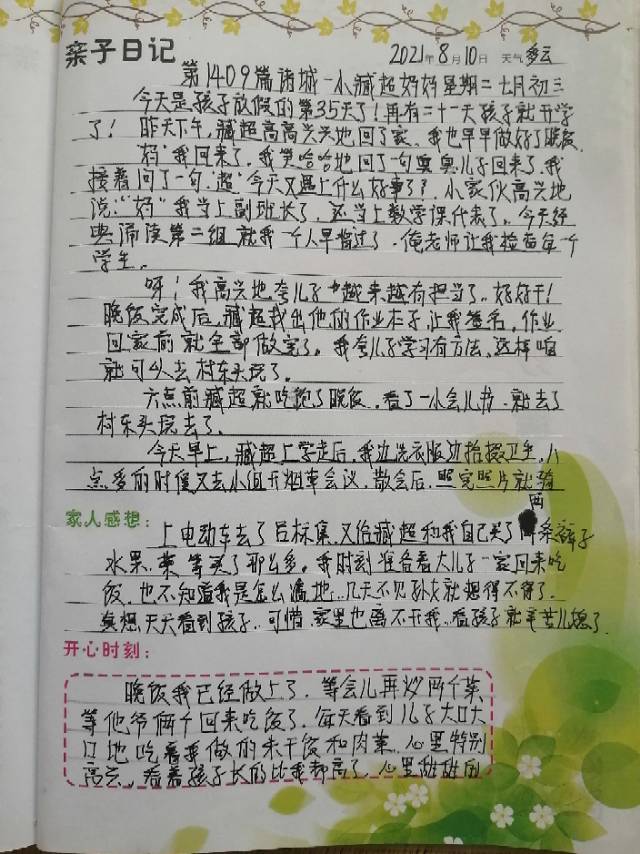 亲子日记
2021年8月10日 天气多云
第1409篇诸城一小臧超妈妈星期二七月初三
今天是孩子放假的第35天了！再有二十一天孩子就开学
了！昨天下午，臧超高高兴兴地回了家。我也早早做好了晚饭，
“妈”我回来了。我笑哈哈地回了一句奥奥儿子回来了，我
接着问了一句，超“今天又遇上什么好事了？小家伙高兴地
说：“妈”我当上副班长了，还当上数学课代表了。今天经
典诵读第二组就我一个人早背过了，俺老师让我检查每一个
学生。
呀！我高兴地夸儿子越来越有担当了，好好干！
晚饭完成后，臧超找出他的作业本子让我签名，作业
回家前就全部做完了。我夸儿子学习有方法，这样咱
就可以去村东头玩了。
六点前臧超就吃饱了晚饭，看了一小会儿书，就去了
村东头玩去了。
今天早上，臧超上学走后，我边洗衣服边拾掇卫生，八
点多的时候又去小值开烟草会议，散会后，照完照片就骑
家人感想：
上电动车去了吕标集，又给臧超和我自己买了两条裤子
水果、菜等买了那么多。我时刻准备着大儿子一家回来吃
饭，也不知道我是怎么滴地，几天不见孙女就想得不得了。
真想天天看到孩子，可惜家里也离不开我，看孩子就辛苦儿媳了。
开心时刻：
晚饭我已经做上了，等会儿再炒两个菜
等他爷俩个回来吃饭了。每天看到儿子大口大
口地吃着我做的米干饭和肉菜，心里特别
高兴，看着孩子长的比我都高了，心里甜甜的